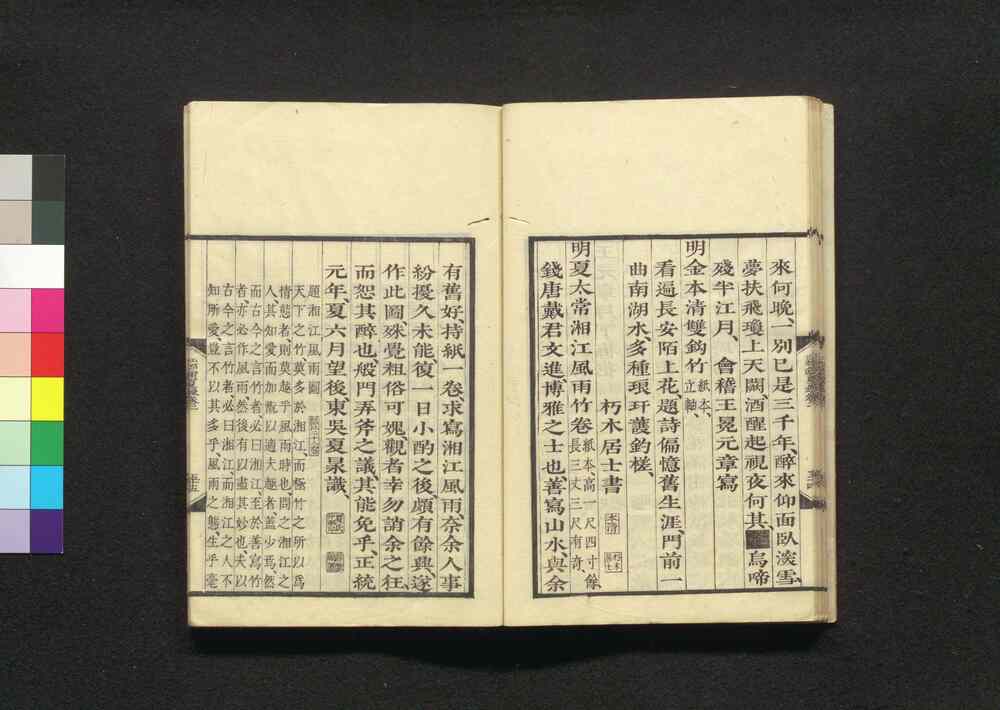 來何晚、一別已是三千年、醉來仰面臥淡雪、
夢扶飛瓊上天闕、酒醒起視夜何其、烏啼
殘半江月、　會稽王冕元章寫
明金本清雙鈎竹紙本、立軸、
看遍長安陌上花、題詩偏憶舊生涯、門前一
曲南湖水、多種琅玕護釣槎、
朽木居士書
明夏太常湘江風雨竹卷紙本、高一尺四寸餘、長三丈三尺有奇、
錢唐戴君文進、博雅之士也、善寫山水、與余
有舊好、持紙一卷、求寫湘江風雨、奈余人事
紛擾、久未能復、一日小酌之後、頗有餘興、遂
作此圖、殊覺粗俗可媿、觀者幸勿誚余之狂、
而恕其醉也、般門弄斧之議、其能免乎、正統
元年、夏六月望後、東吳夏㫤識、
題湘江風雨圖
天下之竹、莫多於湘江、而極竹之所以爲
情態者、則莫越乎風雨時也、問之湘江之
人、其知愛而加翫、以適夫趣者、蓋少焉、然
而古今之言竹者、必曰湘江、至於善寫竹
者、亦必作風雨、然後有以盡其妙也、夫以
古今之言竹者、必曰湘江、而湘江之人不
知所愛、豈不以其多乎、風雨之態、生乎毫